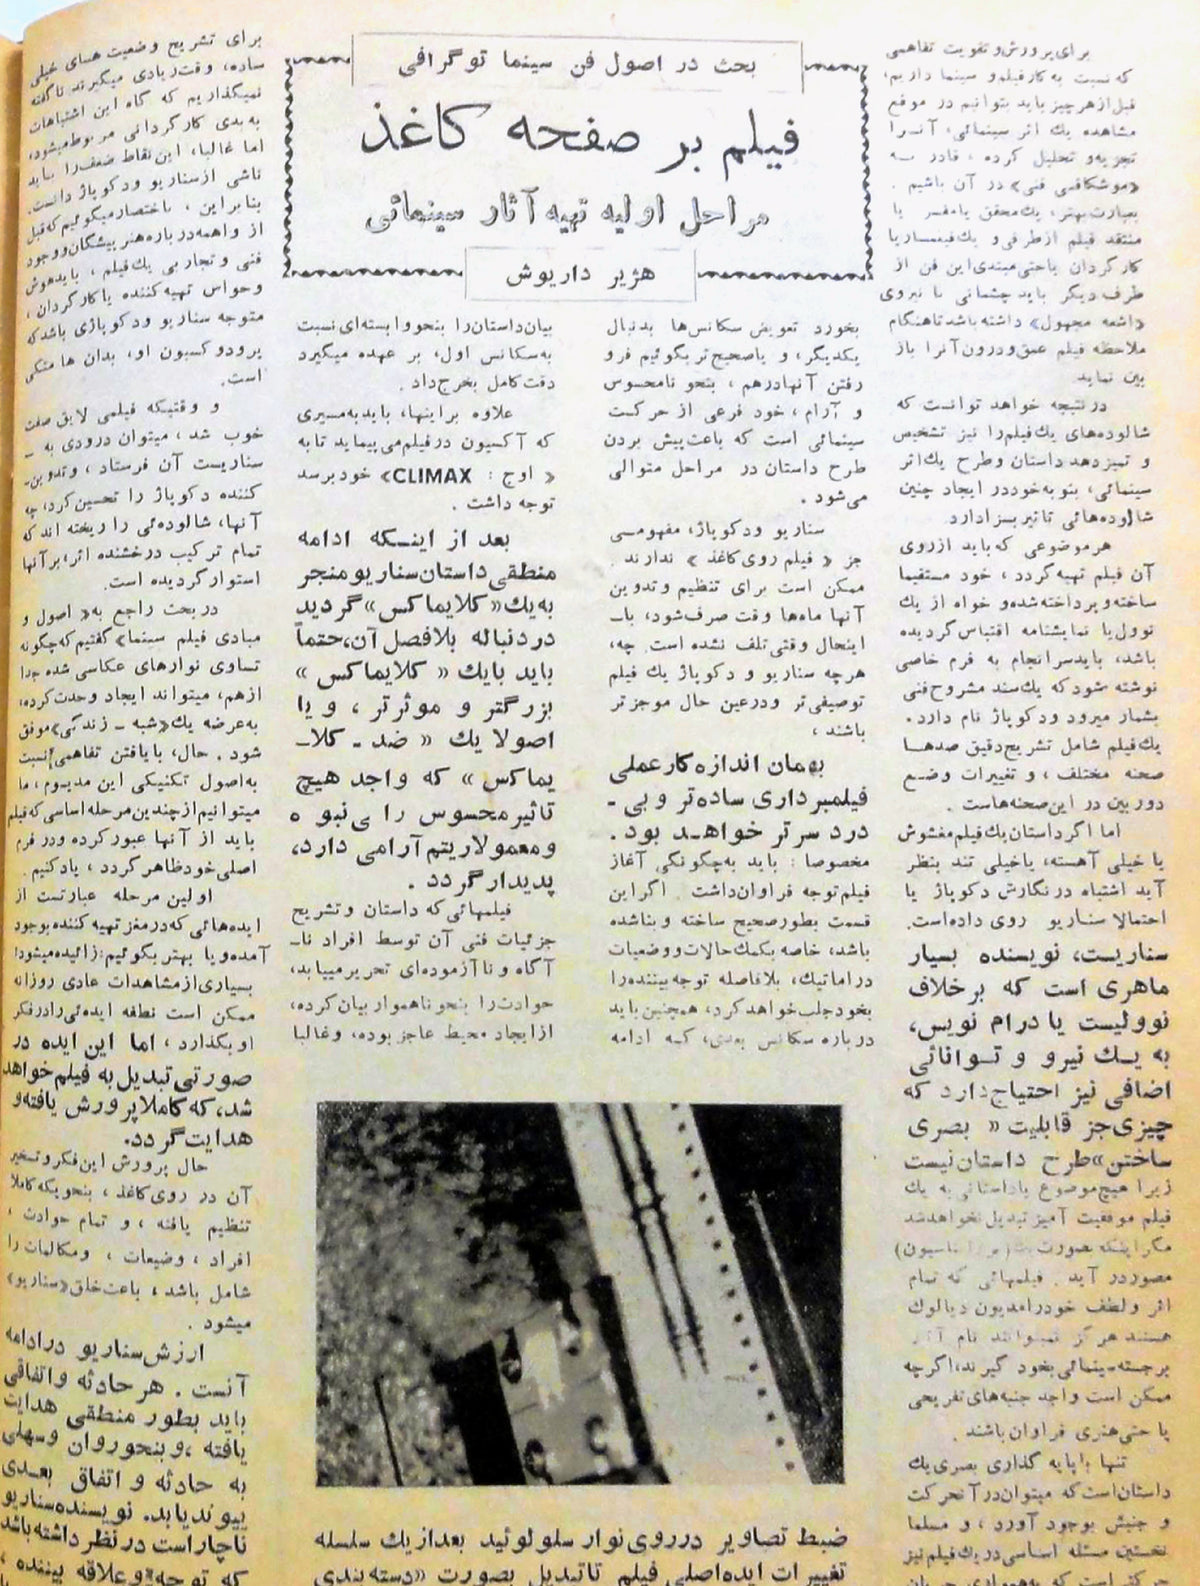 بحث در اصول فن سینما توگرافی
فیلم بر صفحه کاغذ
مراحل اولیه تهیه آثار سینمائی
هژیر داریوش
برای پرورش و تقویت تفاهمی
که نسبت به کار فیلم و سینما داریم،
قبل از هر چیز باید بتوانیم در موقع
مشاهده یك اثر سینمائی، آنرا
تجزیه و تحلیل کرده ، قادر به
«موشکافی فنی» در آن باشیم .
بعبارت بهتر، یك محقق یا مفسر یا
منتقد فیلم از طرفی و یك فیلمساز یا
کارگردان یا حتی مبتدی این فن از
طرف دیگر باید چشمانی با نیروی
«اشعه مجهول» داشته باشد تا هنگام
ملاحظه فیلم عمق و درون آنرا باز
بین نماید
در نتیجه خواهد توانست که
شالوده‌های یك فیلم را نیز تشخیص
و تمیز دهد داستان و طرح یك اثر
سینمائی، بنوبه خود در ایجاد چنین
شالوده‌هائی تاثیر بسزا دارد.
هر موضوعی که باید از روی
آن فیلم تهیه گردد ، خود مستقیما
ساخته و پرداخته شده و خواه از یك
نوول یا نمایشنامه اقتباس گردیده
باشد، باید سرانجام به فرم خاصی
نوشته شود که یك سند مشروح فنی
بشمار میرود و دکوپاژ نام دارد.
یك فیلم شامل تشریح دقیق صدها
صحنه مختلف ، و تغییرات وضع
دوربین در این صحنه‌هاست .
اما اگر داستان یك فیلم مغشوش
یا خیلی آهسته، یا خیلی تند بنظر
آید اشتباه در نگارش دکوپاژ یا
احتمالا سناریو روی داده است.
سناریست، نویسنده بسیار
ماهری است که برخلاف
نوولیست یا درام نویس،
به یك نیرو و توانائی
اضافی نیز احتیاج دارد که
چیزی جز قابلیت « بصری
ساختن» طرح داستان نیست
زیرا هیچ موضوع یا داستانی به یك
فیلم موفقیت آمیز تبدیل نخواهد شد
مگر اینکه بصورت
مصور در آید . فیلمهائی که تمام
اثر و لطف خود را مدیون دیالوك
هستند هرگز نمیتوانند نام آثار
برجسته سینمائی بخود گیرند، اگر چه
ممکن است واجد جنبه‌های تفریحی
یا حتی هنری فراوان باشند .
تنها با پایه گذاری بصری یك
داستان است که میتوان در آن حرکت
و جنبش بوجود آورد ، و مسلما
نخستین مسئله اساسی در یك فیلم نیز
حرکت است که
بخورد تعویض سکانس‌ها بدنبال
یکدیگر، و یا صحیح تر بگوئیم فرو
رفتن آنها در هم ، بنحو نامحسوس
و آرام ، خود فرعی از حرکت
سینمائی است که باعث پیش بردن
طرح داستان در مراحل متوالی
می‌شود .
سناریو و دکوپاژ، مفهومی
جز « فیلم روی کاغذ » ندارند .
ممکن است برای تنظیم و تدوین
آنها ماه‌ها وقت صرف شود، با
اینحال وقتی تلف نشده است. چه،
هر چه سناریو و دکوپاژ یك فیلم
توصیفی تر و در عین حال موجزتر
باشند ،
بهمان اندازه کار عملی
فیلمبرداری ساده‌تر و بی-
درد سر تر خواهد بود .
مخصوصا : باید به چگونگی آغاز
فیلم توجه فراوان داشت . اگر این
قسمت بطور صحیح ساخته و بنا شده
باشد، خاصه بکمك حالات و وضعیات
دراماتیك، بلافاصله توجه بیننده را
بخود جلب خواهد کرد، همچنین باید
درباره سکانس بعدی، که ادامه
بیان داستان را بنحو وابسته‌ای نسبت
به سکانس اول، بر عهده میگیرد
دقت کامل بخرج داد .
علاوه بر اینها، باید به مسیری
که آکسیون در فیلم می پیماید تا به
« اوج : CLIMAX» خود برسد
توجه داشت .
بعد از اینکه ادامه
منطقی داستان سناریو منجر
به یك «کلایماکس» گردید
در دنباله بلافصل آن، حتماً
باید با یك « کلایماکس »
بزرگتر و موثرتر ، و یا
اصولا یك « ضد - کلا-
یماکس » که واجد هیچ
تاثیر محسوس را ی نبوه
و معمولا ریتم آرامی دارد،
پدیدار گردد .
فیلمهائی که داستان و تشریح
جزئیات فنی آن توسط افراد نا-
آگاه و نا آزموده‌ای تحریر مییابد،
حوادث را بنحو ناهموار بیان کرده،
از ایجاد محیط عاجز بوده، و غالبا
برای تشریح وضعیت های خیلی
ساده، وقت زیادی میگیرند ناگفته
نمیگذاریم که گاه این اشتباهات
به بدی کارگردانی مربوط میشود،
اما غالبا، این نقاط ضعف را باید
ناشی از سناریو و دکوپاژ دانست.
بنابراین ، باختصار میگوئیم که قبل
از واهمه درباره هنر پیشگان و وجود
فنی و تجاربی یك فیلم ، باید هوش
و حواس تهیه کننده یا کارگردان ،
متوجه سناریو و دکوپاژی باشد که
پرودوکسیون او، بدان ها متکی
است.
و وقتیکه فیلمی لایق صفت
خوب شد ، میتوان درودی به -
سناریست آن فرستاد ، و تدوین-
کننده دکوپاژ را تحسین کرد، چه
آنها، شالوده‌ئی را ریخته اند که
تمام ترکیب درخشنده اثر، بر آنها
استوار گردیده است.
در بحث راجع به «اصول و
مبادی فیلم سینما» گفتیم که چگونه
تساوی نوارهای عکاسی شده جدا
از هم، میتواند ایجاد وحدت کرده،
به عرضه یك «شبه - زندگی» موفق
شود . حال، با یافتن تفاهمی نسبت
به اصول تکنیکی این مدیوم، ما
میتوانیم از چندین مرحله اساسی که فیلم
باید از آنها عبور کرده و در فرم
اصلی خود ظاهر گردد ، یاد کنیم .
اولین مرحله عبارتست از
ایده‌هائی که در مغز تهیه کننده بوجود
آمده و یا بهتر بگوئیم: زائیده میشود:
بسیاری از مشاهدات عادی روزانه
ممکن است نطفه ایده‌ئی را در فکر
او بگذارد ، اما این ایده در
صورتی تبدیل به فیلم خواهد
شد، که کاملا پرورش یافته و
هدایت گردد.
حال پرورش این فکر و تسخیر
آن در روی کاغذ ، بنحویکه کاملا
تنظیم یافته ، و تمام حوادث ،
افراد ، وضیعات ، و مکالمات را
شامل باشد ، باعث خلق «سناریو»
میشود .
ارزش سناریو در ادامه
آنست . هر حادثه و اتفاقی
باید بطور منطقی هدایت
یافته ، و بنحو روان و سهلی
به حادثه و اتفاق بعدی
پیوند یابد. نویسنده سناریو
ناچار است در نظر داشته باشد
که توجه و علاقه بیننده ،
ضبط تصاویر در روی نوار سلولوئید بعد از یك سلسله
تغییرات ایده اصلی فیلم تا تبدیل بصورت «دسته بندی